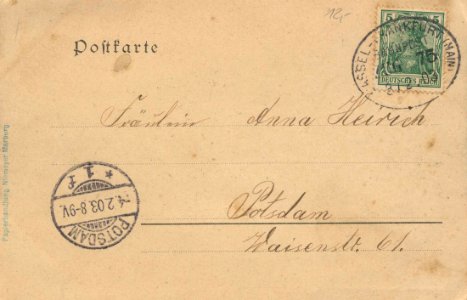 12,-
Postkarte
5
5
DEUTSCHES REICH
CASSEL-FRANKFURT (MAIN)
Fräulein Anna Heirich
Potsdam
Waisenstr. 61.
POTSDAM
4.2.03.8-9V.
* 1 f
Papierhandlung Niemeyer Marburg